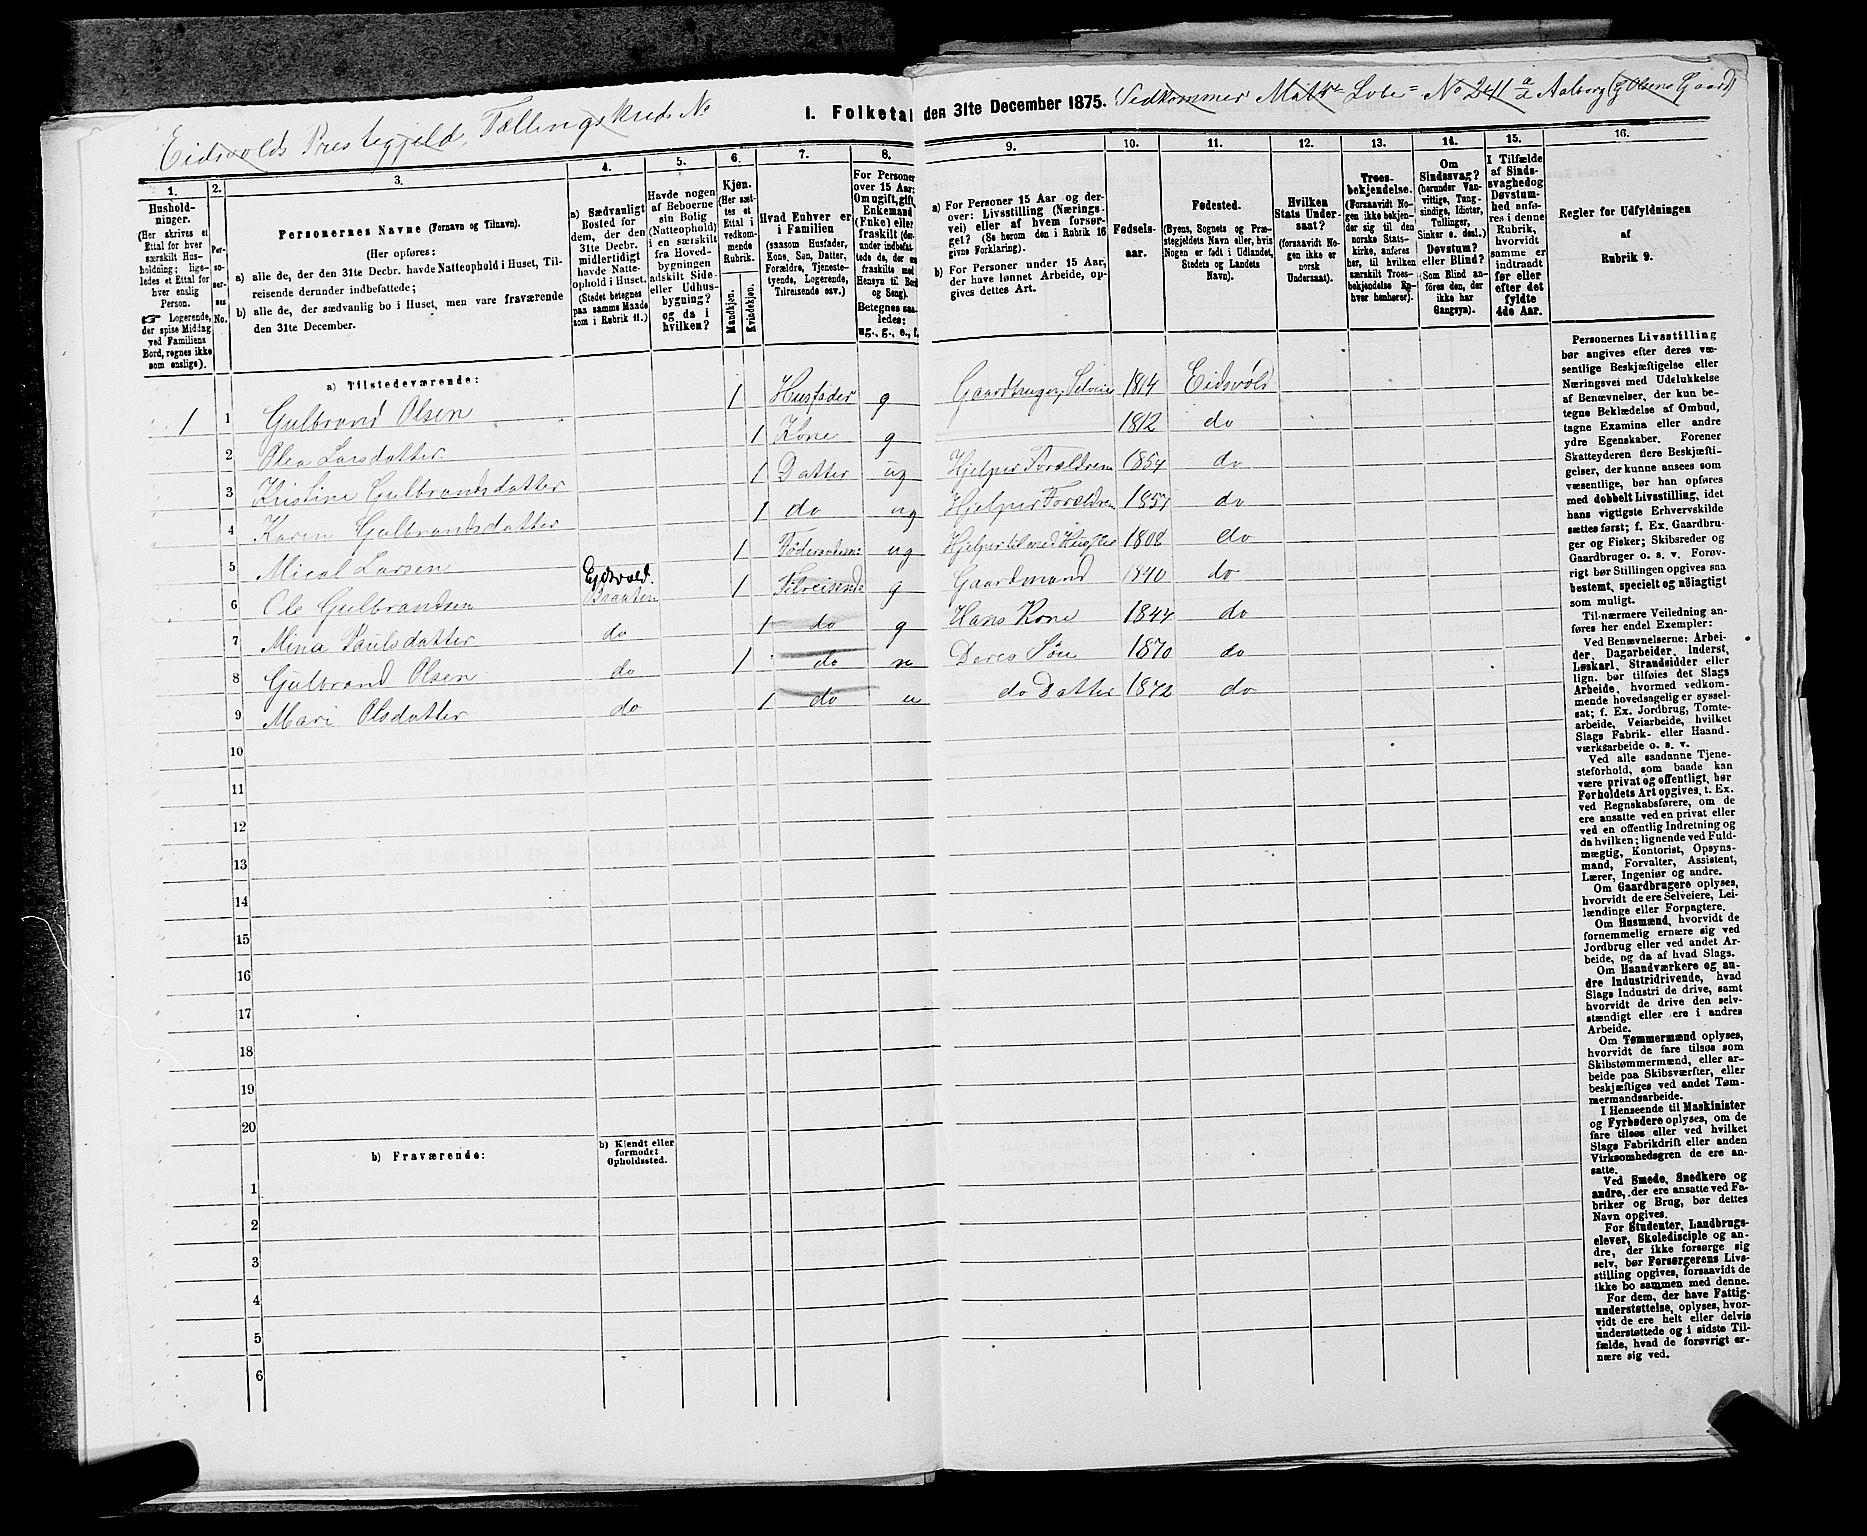 I. Folketal den 31te December 1875.
Eidsvolds Prestegjeld, Tællingskreds No
Vedkommer Matr Løbe= No 241 a Aalborg (G Olsens Gaard)
1. 2. 3. 4. 5. 6. 7. 8. 9. 10. 11. 12. 13. 14. 15. 16.
Hushold-
ninger.
(Her skrives et
Ettal for hver
særskilt Hus-
holdning; lige-
ledes et Ettal for
hver enslig
Person.
☞ Logerende,
der spise Middag
ved Familiens
Bord, regnes ikke
som enslige).
Per-
so-
ner-
nes
No.
Personernes Navne (Fornavn og Tilnavn).
(Her opføres:
a) alle de, der den 31te Decbr. havde Natteophold i Huset, Til-
reisende derunder indbefattede;
b) alle de, der sædvanlig bo i Huset, men vare fraværende
den 31te December.
a) Sædvanligt
Bosted for
dem, der den
31te Decbr.
midlertidigt
havde Natte-
ophold i Huset.
(Stedet betegnes
paa samme Maade
som i Rubrik 11.)
Havde nogen
af Beboerne
sin Bolig
(Natteophold)
i en særskilt
fra Hoved-
bygningen
adskilt Side-
eller Udhus-
bygning?
og da i
hvilken?
Kjøn.
(Her sæt-
tes et
Ettal i
vedkom-
mende
Rubrik.
Mandkjøn.
Kvindekjøn.
Hvad Enhver er
i Familien
(saasom Husfader,
Kone, Søn, Datter,
Forældre, Tjeneste-
tyende, Logerende,
Tilreisende osv.)
For Personer
over 15 Aar:
Om ugift, gift,
Enkemand
(Enke) eller
fraskilt (der-
under indbefat-
tede da, der ere
fraskilte med
Hensyn til Bord
og Seng).
Betegnes saa-
ledes:
ug., g., e., f.
a) For Personer 15 Aar og der-
over: Livsstilling (Nærings-
vei) eller af hvem forsør-
get? (Se herom den i Rubrik 16
givne Forklaring).
b) For Personer under 15 Aar,
der have lønnet Arbeide, op-
gives dettes Art.
Fødsels-
aar.
Fødested.
(Byens, Sognets og Præ-
stegjeldets Navn eller, hvis
Nogen er født i Udlandet,
Stedets og Landets
Navn).
Hvilken
Stats Under-
saat?
(forsaavidt No-
gen ikke er
norsk
Undersaat).
Troes-
bekjendelse.
(Forsaavidt No-
gen ikke bekjen-
der sig til den
norske Stats-
kirke, anføres
her, til hvilken
særskilt Troes-
bekjendelse En-
hver henhører).
Om
Sindssvag?
(herunder Van-
vittige, Tung-
sindige, Idioter,
Tullinger,
Sinker o. desl.)
Døvstum?
eller Blind?
(Som Blind an-
føres den, der
ikke har
Gangsyn).
I Tilfælde
af Sinds-
svaghed og
Døvstum-
hed anfø-
res i denne
Rubrik,
hvorvidt
samme er
indtraadt
før eller
efter det
fyldte
4de Aar.
Regler for Udfyldningen
af
Rubrik 9.
a) Tilstedeværende:
1 1 Gulbrand Olsen 1 Husfader g Gaardbruger, Selveier 1814 Eidsvold
2 Olea Larsdatter 1 Kone g 1812 do
3 Kristine Gulbrandsdatter 1 Datter ug Hjelper Forældrene 1854 do
4 Karen Gulbrandsdatter 1 do ug Hjelper Forældrene 1857 do
5 Micol Larsen 1 ug Hjelper til med 1808 do
6 Ole Gulbrandsen Ejdsvold. Braaten 1 Tilreisende g Gaardmand 1840 do
7 Mina Paulsdatter do 1 do g Hans Kone 1844 do
8 Gulbrand Olsen do 1 do u Deres Søn 1870 do
9 Mari Olsdatter do 1 do u do Datter 1872 do
10
11
12
13
14
15
16
17
18
19
20
b) Fraværende:
b) Kjendt eller
formodet
Opholdssted.
1
2
3
4
5
6
Personernes Livsstilling
bør angives efter deres væ-
sentlige Beskjæftigelse eller
Næringsvei med Udelukkelse
af Benævnelser, der kun be-
tegne Beklædelse af Ombud,
tagne Examina eller andre
ydre Egenskaber. Forener
Skatteyderen flere Beskjæfti-
gelser, der kunne ansees som
væsentlige, bør han opføres
med dobbelt Livsstilling, idet
hans vigtigste Erhvervskilde
sættes først; f. Ex. Gaardbru-
ger og Fisker; Skibsreder og
Gaardbruger o. s. v. Forøv-
rigt bør Stillingen opgives saa
bestemt, specielt og nøiagtigt
som muligt.
Til nærmere Veiledning an-
føres her endel Exempler:
Ved Benævnelserne: Arbei-
der, Dagarbeider, Inderst,
Løskarl, Strandsidder eller
lign. bør tilføies det Slags
Arbeide, hvormed vedkom-
mende hovedsagelig er syssel-
sat; f. Ex. Jordbrug, Tomte-
arbeide, Veiarbeide, hvilket
Slags Fabrik- eller Haand-
værksarbeide o. s. v.
Ved alle saadanne Tjene-
steforhold, som baade kan
være privat og offentligt, bør
Forholdets Art opgives, t. Ex.
ved Regnskabsførere, om de
ere ansatte ved en privat eller
ved en offentlig Indretning og
da hvilken; lignende ved Fuld-
mægtig, Kontorist, Opsyns-
mand, Forvalter, Assistent,
Lærer, Ingeniør og andre.
Om Gaardbrugere oplyses,
hvorvidt de ere Selveiere, Lei-
lændinge eller Forpagtere.
Om Husmænd, hvorvidt de
fornemmelig ernære sig ved
Jordbrug eller ved andet Ar-
beide, og da af hvad Slags.
Om Haandværkere og an-
dre Industridrivende, hvad
Slags Industri de drive, samt
hvorvidt de drive den selv-
stændigt eller ere i andres
Arbeide.
Om Tømmermænd oplyses,
hvorvidt de fare tilsøs som
Skibstømmermænd, eller ar-
beide paa Skibsværfter, eller
beskjæftiges ved andet Tøm-
mermandsarbeide.
I Henseende til Maskinister
og Fyrbødere oplyses, om de
fare tilsøs eller ved hvilket
Slags Fabrikdrift eller anden
Virksomhedsgren de ere an-
satte.
Ved Smede, Snedkere og
andre, der ere ansatte ved Fa-
briker og Brug, bør dettes
Navn opgives.
For Studenter, Landbrugs-
elever, Skoledisciple og an-
dre, der ikke forsørge sig
selv, bør Forsørgerens Livs-
stilling opgives, forsaavidt de
ikke bo sammen med denne.
For dem, der have Fattig-
understøttelse, oplyses, hvor-
vidt de ere helt eller delvis
understøttede og i sidste Til-
fælde, hvad de forøvrigt er-
nære sig ved.